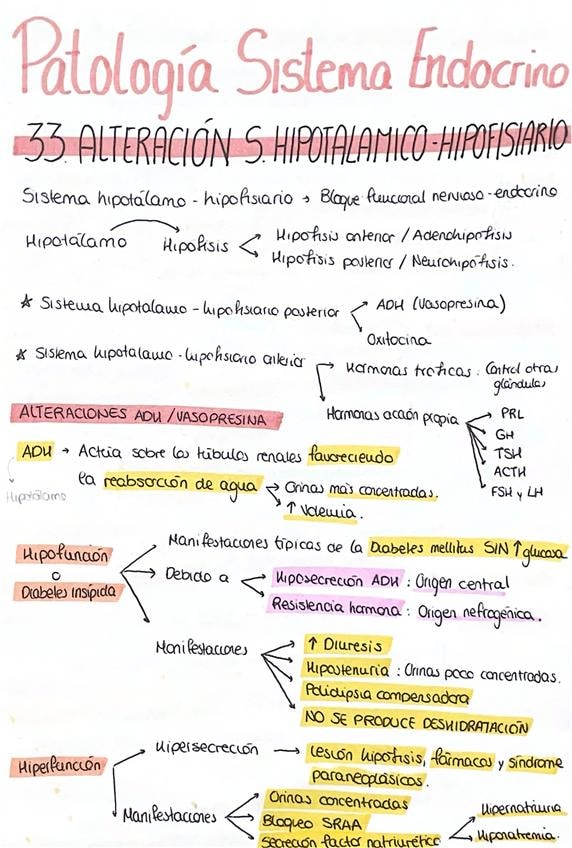 Patología Sistema Endocrino
33. ALTERACIÓN S. HIPOTALAMICO-HIPOFISIARIO
Sistema hipotálamo - hipofisiario → Bloque funcional nervioso-endocrino
Hipotálamo Hipofisis < Hipofisis anterior / Adenohipofisis
Hipofisis posterior / Neurohipofisis.
* Sistema hipotalamo - hipofisiario posterior → ADH (Vasopresina)
Oxitocina
* Sistema hipotalamo - hipofisiario anterior → Hormonas troficas : Control otras
glándulas
Hormonas acción propia → PRL
GH
TSH
ACTH
FSH y LH
ALTERACIONES ADH / VASOPRESINA
ADH → Actúa sobre los túbulos renales favoreciendo
Hipotálamo
la reabsorción de agua → Orinas más concentradas.
↑ Volemia.
Hipofunción
o
Diabetes insípida
Manifestaciones típicas de la Diabetes mellitus SIN ↑ glucosa
Debido a
Hiposecreción ADH : Origen central
Resistencia hormona : Origen nefrogénica.
Manifestaciones
↑ Diuresis
Hipostenuria : Orinas poco concentradas.
Polidipsia compensadora
NO SE PRODUCE DESHIDRATACIÓN
Hiperfunción
Hipersecreción → Lesión hipofisis, fármacos y síndrome
paraneoplásicos.
Manifestaciones
Orinas concentradas
Bloqueo SRAA
Secreción factor natriurético
Hipernatriuria
Hiponatremia.